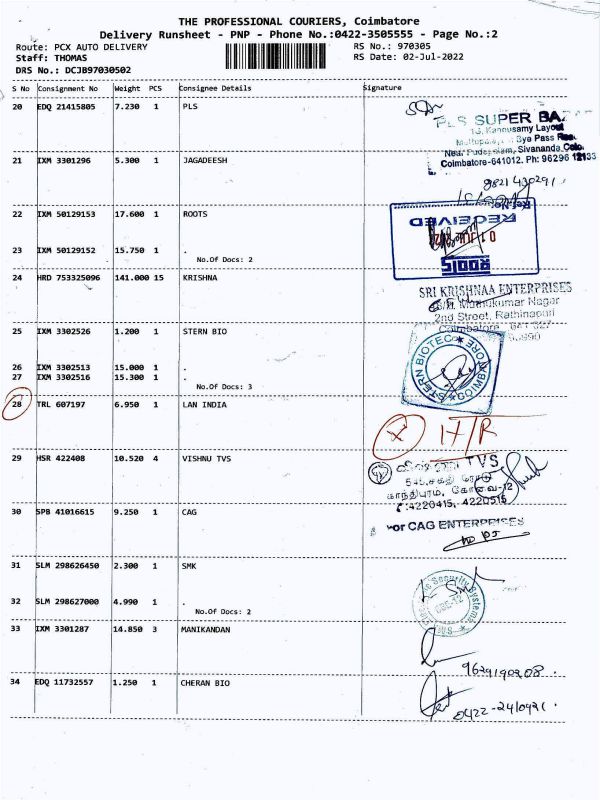 THE PROFESSIONAL COURIERS, Coimbatore
Delivery Runsheet - PNP - Phone No.:0422-3505555 - Page No.:2
Route: PCX AUTO DELIVERY RS No.: 970305
Staff: THOMAS RS Date: 02-Jul-2022
DRS No.: DCJB97030502
S No Consignment No Weight PCS Consignee Details Signature
20 EDQ 21415805 7.230 1 PLS
PLS SUPER BA
Kannusamy Layout
Bye Pass Roa
Sivananda Colo
Coimbatore-641012. Ph: 96296 12133
21 IXM 3301296 5.300 1 JAGADEESH
9821430291
22 IXM 50129153 17.600 1 ROOTS
RECEIVED
23 IXM 50129152 15.750 1 .
No.Of Docs: 2
ROOTS
24 HRD 753325096 141.000 15 KRISHNA
SRI KRISHNAA ENTERPRISES
Muthukumar Nagar
2nd Street, Rathinapuri
Coimbatore
25 IXM 3302526 1.200 1 STERN BIO
STERN BIOTEC
COIMBATORE
26 IXM 3302513 15.000 1 .
27 IXM 3302516 15.300 1 .
No.Of Docs: 3
28 TRL 607197 6.950 1 LAN INDIA
29 HSR 422408 10.520 4 VISHNU TVS
TVS
காந்திபுரம், கோவை-12
4220415, 4220515
30 SPB 41016615 9.250 1 CAG
For CAG ENTERPRISES
31 SLM 298626450 2.300 1 SMK
Security Systems
CBE-12
32 SLM 298627000 4.990 1 .
No.Of Docs: 2
33 IXM 3301287 14.850 3 MANIKANDAN
9629190208
34 EDQ 11732557 1.250 1 CHERAN BIO